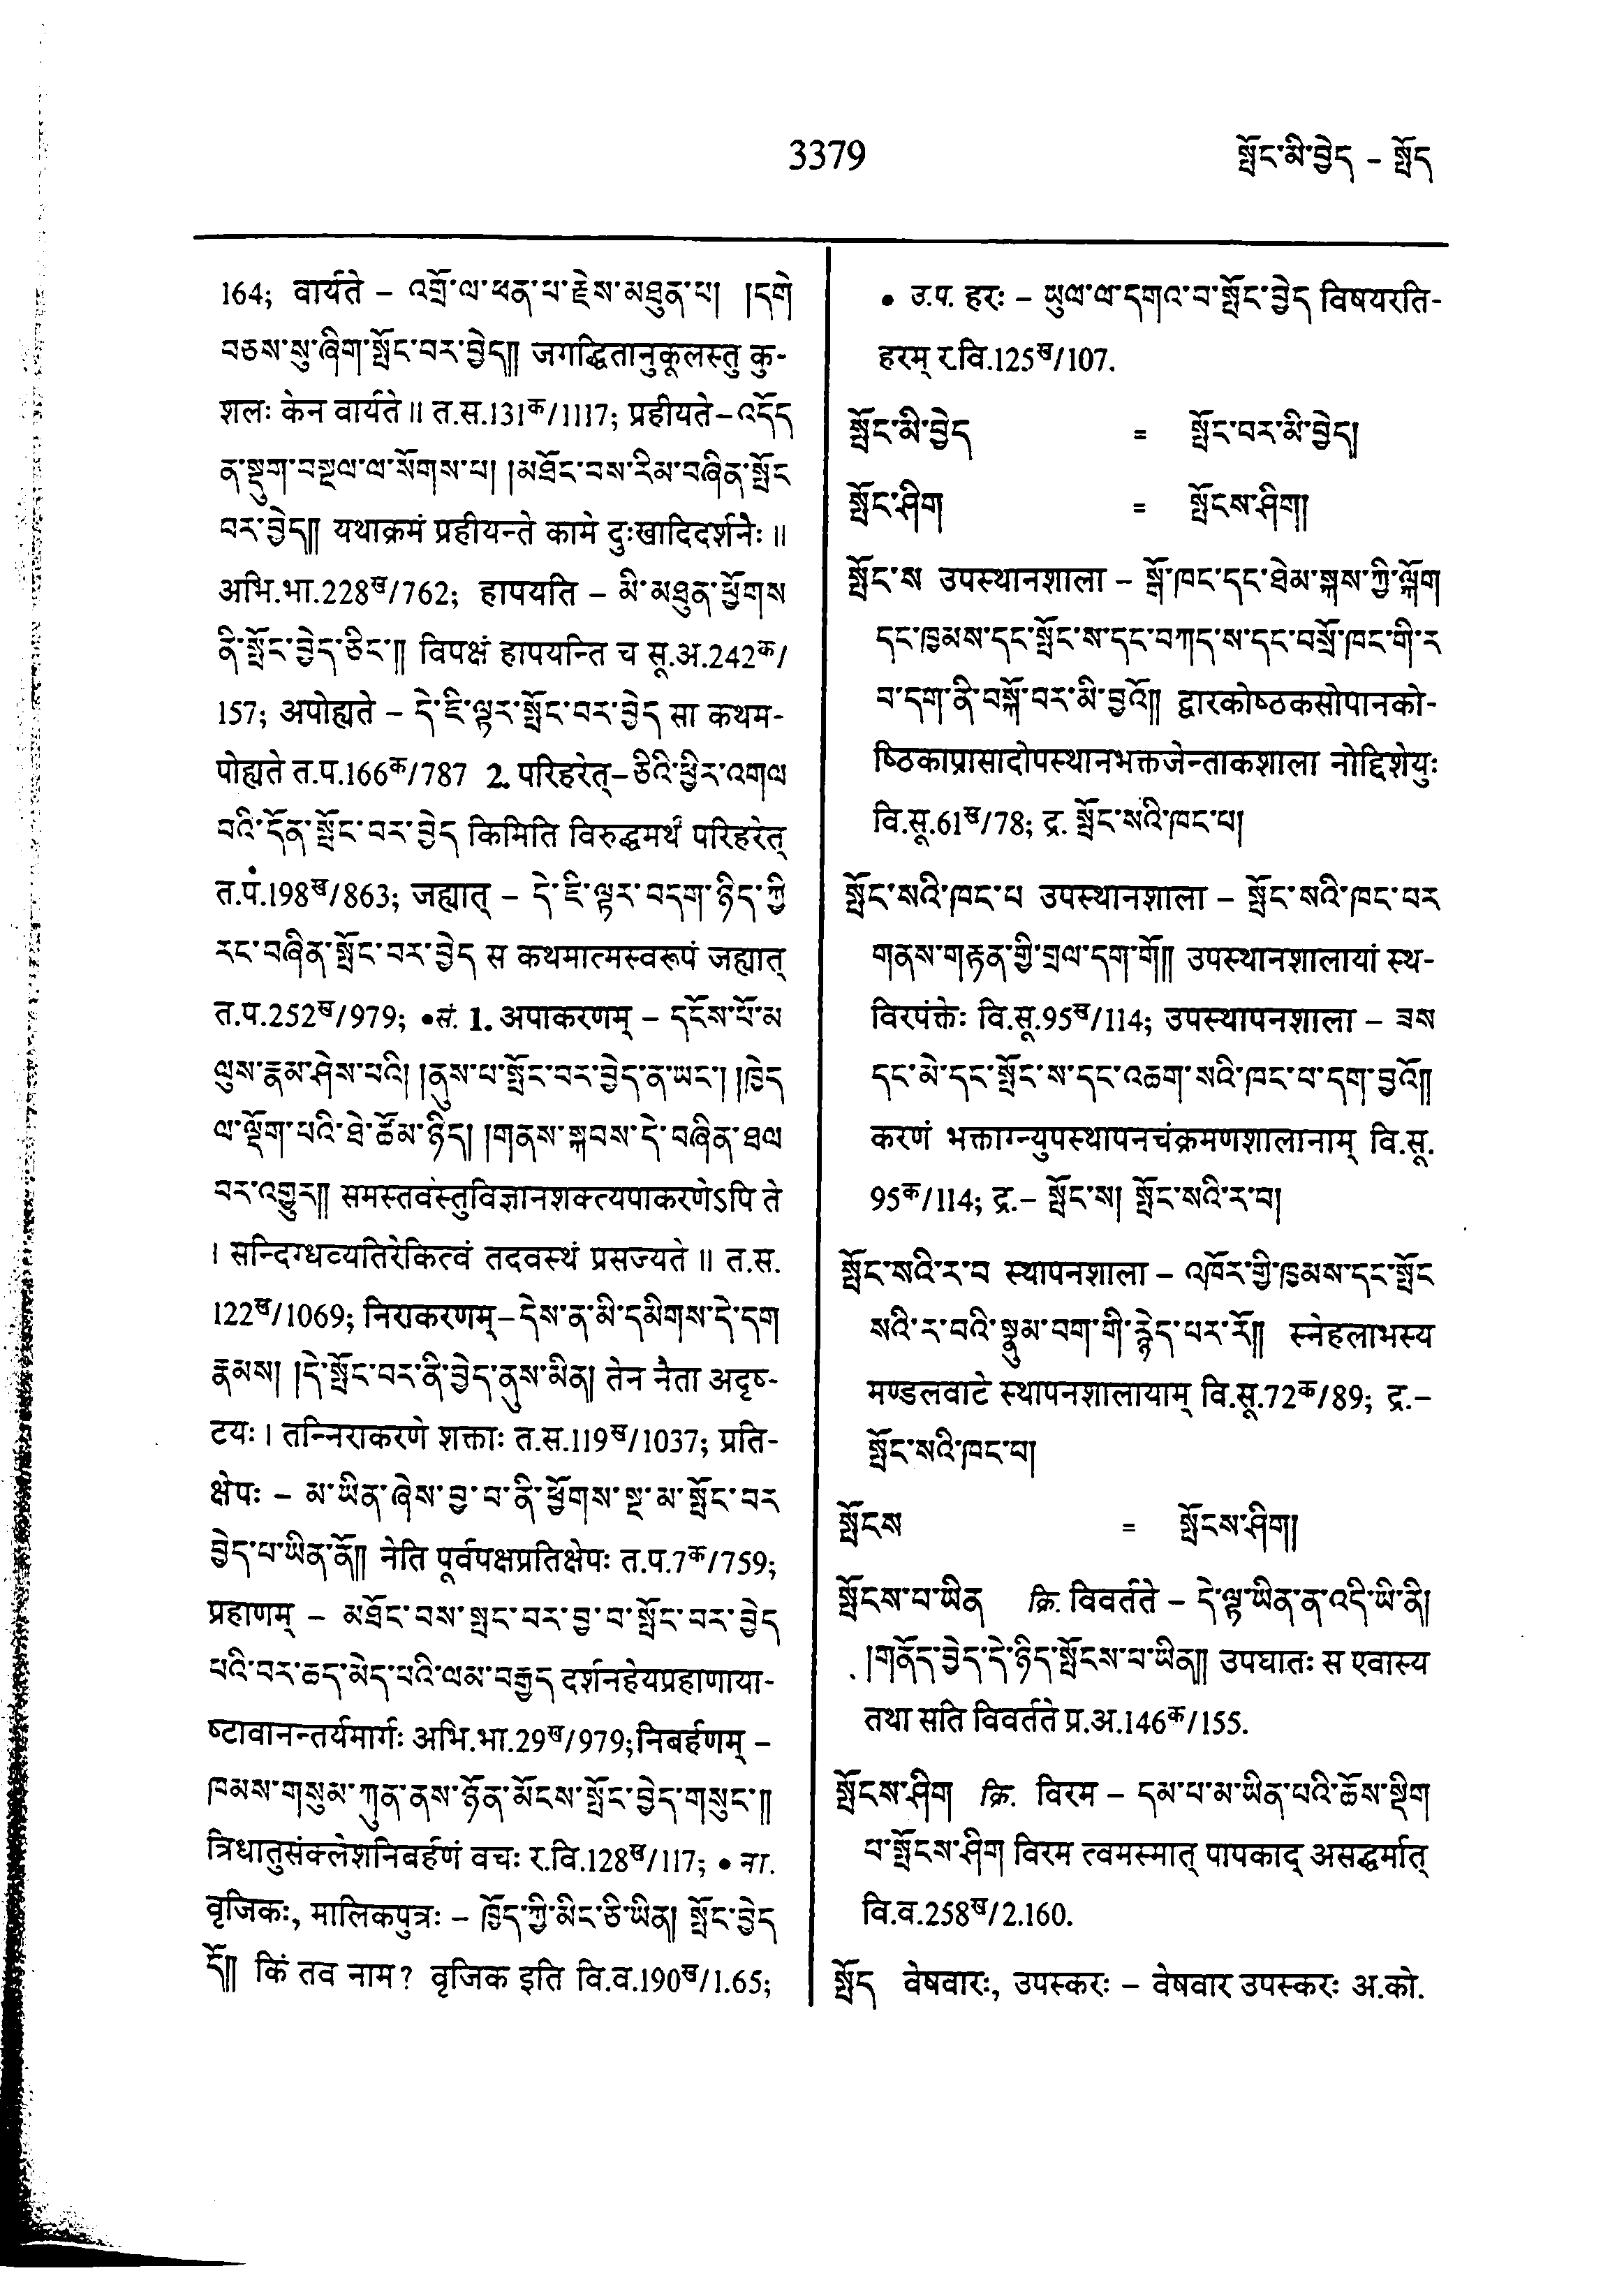 3379
སྤོང་མི་བྱེད – སྤོད
164; वार्यते – འགྲོ་ལ་ཕན་པ་རྗེས་མཐུན་པ། །དགེ
བཅས་སུ་ཞིག་སྤོང་བར་བྱེད།། जगद्धितानुकूलस्तु कु-
शलः केन वार्यते॥ त.स.131क/1117; प्रहीयते–འདོད
ན་སྡུག་བསྔལ་ལ་སོགས་པ། །མཐོང་བས་རིམ་བཞིན་སྤོང
བར་བྱེད།། यथाक्रमं प्रहीयन्ते कामे दुःखादिदर्शनैः॥
अभि.भा.228ख/762; हापयति – མི་མཐུན་ཕྱོགས
ནི་སྤོང་བྱེད་ཅིང་།། विपक्षं हापयन्ति च सू.अ.242क/
157; अपोह्यते – དེ་ཇི་ལྟར་སྤོང་བར་བྱེད सा कथम-
पोह्यते त.प.166क/787 2. परिहरेत्–ཅིའི་ཕྱིར་འགལ
བའི་དོན་སྤོང་བར་བྱེད किमिति विरुद्धमर्थं परिहरेत्
त.पं.198ख/863; जह्यात् – དེ་ཇི་ལྟར་བདག་ཉིད་ཀྱི
རང་བཞིན་སྤོང་བར་བྱེད स कथमात्मस्वरूपं जह्यात्
त.प.252ख/979; •सं. 1. अपाकरणम् – དངོས་པོ་མ
ལུས་རྣམ་ཤེས་པའི། །ནུས་པ་སྤོང་བར་བྱེད་ན་ཡང་། །ཁྱེད
ལ་ལྡོག་པའི་ཐེ་ཚོམ་ཉིད། །གནས་སྐབས་དེ་བཞིན་ཐལ
བར་འགྱུར།། समस्तवस्तुविज्ञानशक्त्यपाकरणेऽपि ते
। सन्दिग्धव्यतिरेकित्वं तदवस्थं प्रसज्यते॥ त.स.
122ख/1069; निराकरणम्–དེས་ན་མི་དམིགས་དེ་དག
རྣམས། །དེ་སྤོང་བར་ནི་བྱེད་ནུས་མིན། तेन नैता अदृष्-
टयः। तन्निराकरणे शक्ताः त.स.119ख/1037; प्रति-
क्षेपः – མ་ཡིན་ཞེས་བྱ་བ་ནི་ཕྱོགས་སྔ་མ་སྤོང་བར
བྱེད་པ་ཡིན་ནོ།། नेति पूर्वपक्षप्रतिक्षेपः त.प.7क/759;
प्रहाणम् – མཐོང་བས་སྤང་བར་བྱ་བ་སྤོང་བར་བྱེད
པའི་བར་ཆད་མེད་པའི་ལམ་བརྒྱད दर्शनहेयप्रहाणाया-
ष्टावानन्तर्यमार्गः अभि.भा.29ख/979; निबर्हणम् –
ཁམས་གསུམ་ཀུན་ནས་ཉོན་མོངས་སྤོང་བྱེད་གསུང་།།
त्रिधातुसंक्लेशनिबर्हणं वचः र.वि.128ख/117; • ना.
वृजिकः, मालिकपुत्रः – ཁྱོད་ཀྱི་མིང་ཅི་ཡིན། སྤོང་བྱེད
དོ།། किं तव नाम? वृजिक इति वि.व.190ख/1.65;
• उ.प. हरः – ཡུལ་ལ་དགའ་བ་སྤོང་བྱེད विषयरति-
हरम् र.वि.125ख/107.
སྤོང་མི་བྱེད = སྤོང་བར་མི་བྱེད།
སྤོང་ཤིག = སྤོངས་ཤིག།
སྤོང་ས उपस्थानशाला – སྒོ་ཁང་དང་ཐེམ་སྐས་ཀྱི་ལྐོག
དང་ཁྱམས་དང་སྤོང་ས་དང་བཀད་ས་དང་བསྲོ་ཁང་གི་ར
བ་དག་ནི་བསྐོ་བར་མི་བྱའོ།། द्वारकोष्ठकसोपानको-
ष्ठिकाप्रासादोपस्थानभक्तजेन्ताकशाला नोद्दिशेयुः
वि.सू.61ख/78; द्र. སྤོང་སའི་ཁང་པ།
སྤོང་སའི་ཁང་པ उपस्थानशाला – སྤོང་སའི་ཁང་བར
གནས་གརྟན་གྱི་གྲལ་དག་གོ།། उपस्थानशालायां स्थ-
विरपंक्तेः वि.सू.95ख/114; उपस्थापनशाला – ཟས
དང་མེ་དང་སྤོང་ས་དང་འཆག་སའི་ཁང་པ་དག་བྱའོ།།
करणं भक्ताग्न्युपस्थापनचंक्रमणशालानाम् वि.सू.
95क/114; द्र.– སྤོང་ས། སྤོང་སའི་ར་བ།
སྤོང་སའི་ར་བ स्थापनशाला – འཁོར་གྱི་ཁྱམས་དང་སྤོང
སའི་ར་བའི་སྣུམ་བག་གི་རྙེད་པར་རོ།། स्नेहलाभस्य
मण्डलवाटे स्थापनशालायाम् वि.सू.72क/89; द्र.–
སྤོང་སའི་ཁང་བ།
སྤོངས = སྤོངས་ཤིག།
སྤོངས་བ་ཡིན क्रि. विवर्तते – དེ་ལྟ་ཡིན་ན་འདི་ཡི་ནི།
།གནོད་བྱེད་དེ་ཉིད་སྤོངས་བ་ཡིན།། उपघातः स एवास्य
तथा सति विवर्तते प्र.अ.146क/155.
སྤོངས་ཤིག क्रि. विरम – དམ་པ་མ་ཡིན་པའི་ཆོས་སྡིག
པ་སྤོངས་ཤིག विरम त्वमस्मात् पापकाद् असद्धर्मात्
वि.व.258ख/2.160.
སྤོད वेषवारः, उपस्करः – वेषवार उपस्करः अ.को.